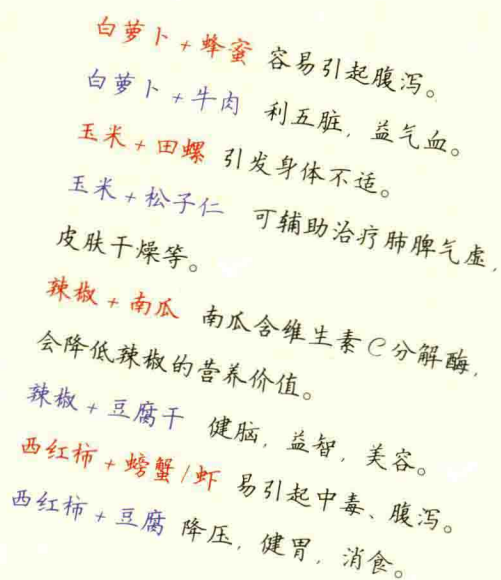 白萝卜+蜂蜜 容易引起腹泻。
白萝卜+牛肉 利五脏，益气血。
玉米+田螺 引发身体不适。
玉米+松子仁 可辅助治疗肺脾气虚，
皮肤干燥等。
辣椒+南瓜 南瓜含维生素C分解酶，
会降低辣椒的营养价值。
辣椒+豆腐干 健脑，益智，美容。
西红柿+螃蟹/虾 易引起中毒、腹泻。
西红柿+豆腐 降压，健胃，消食。